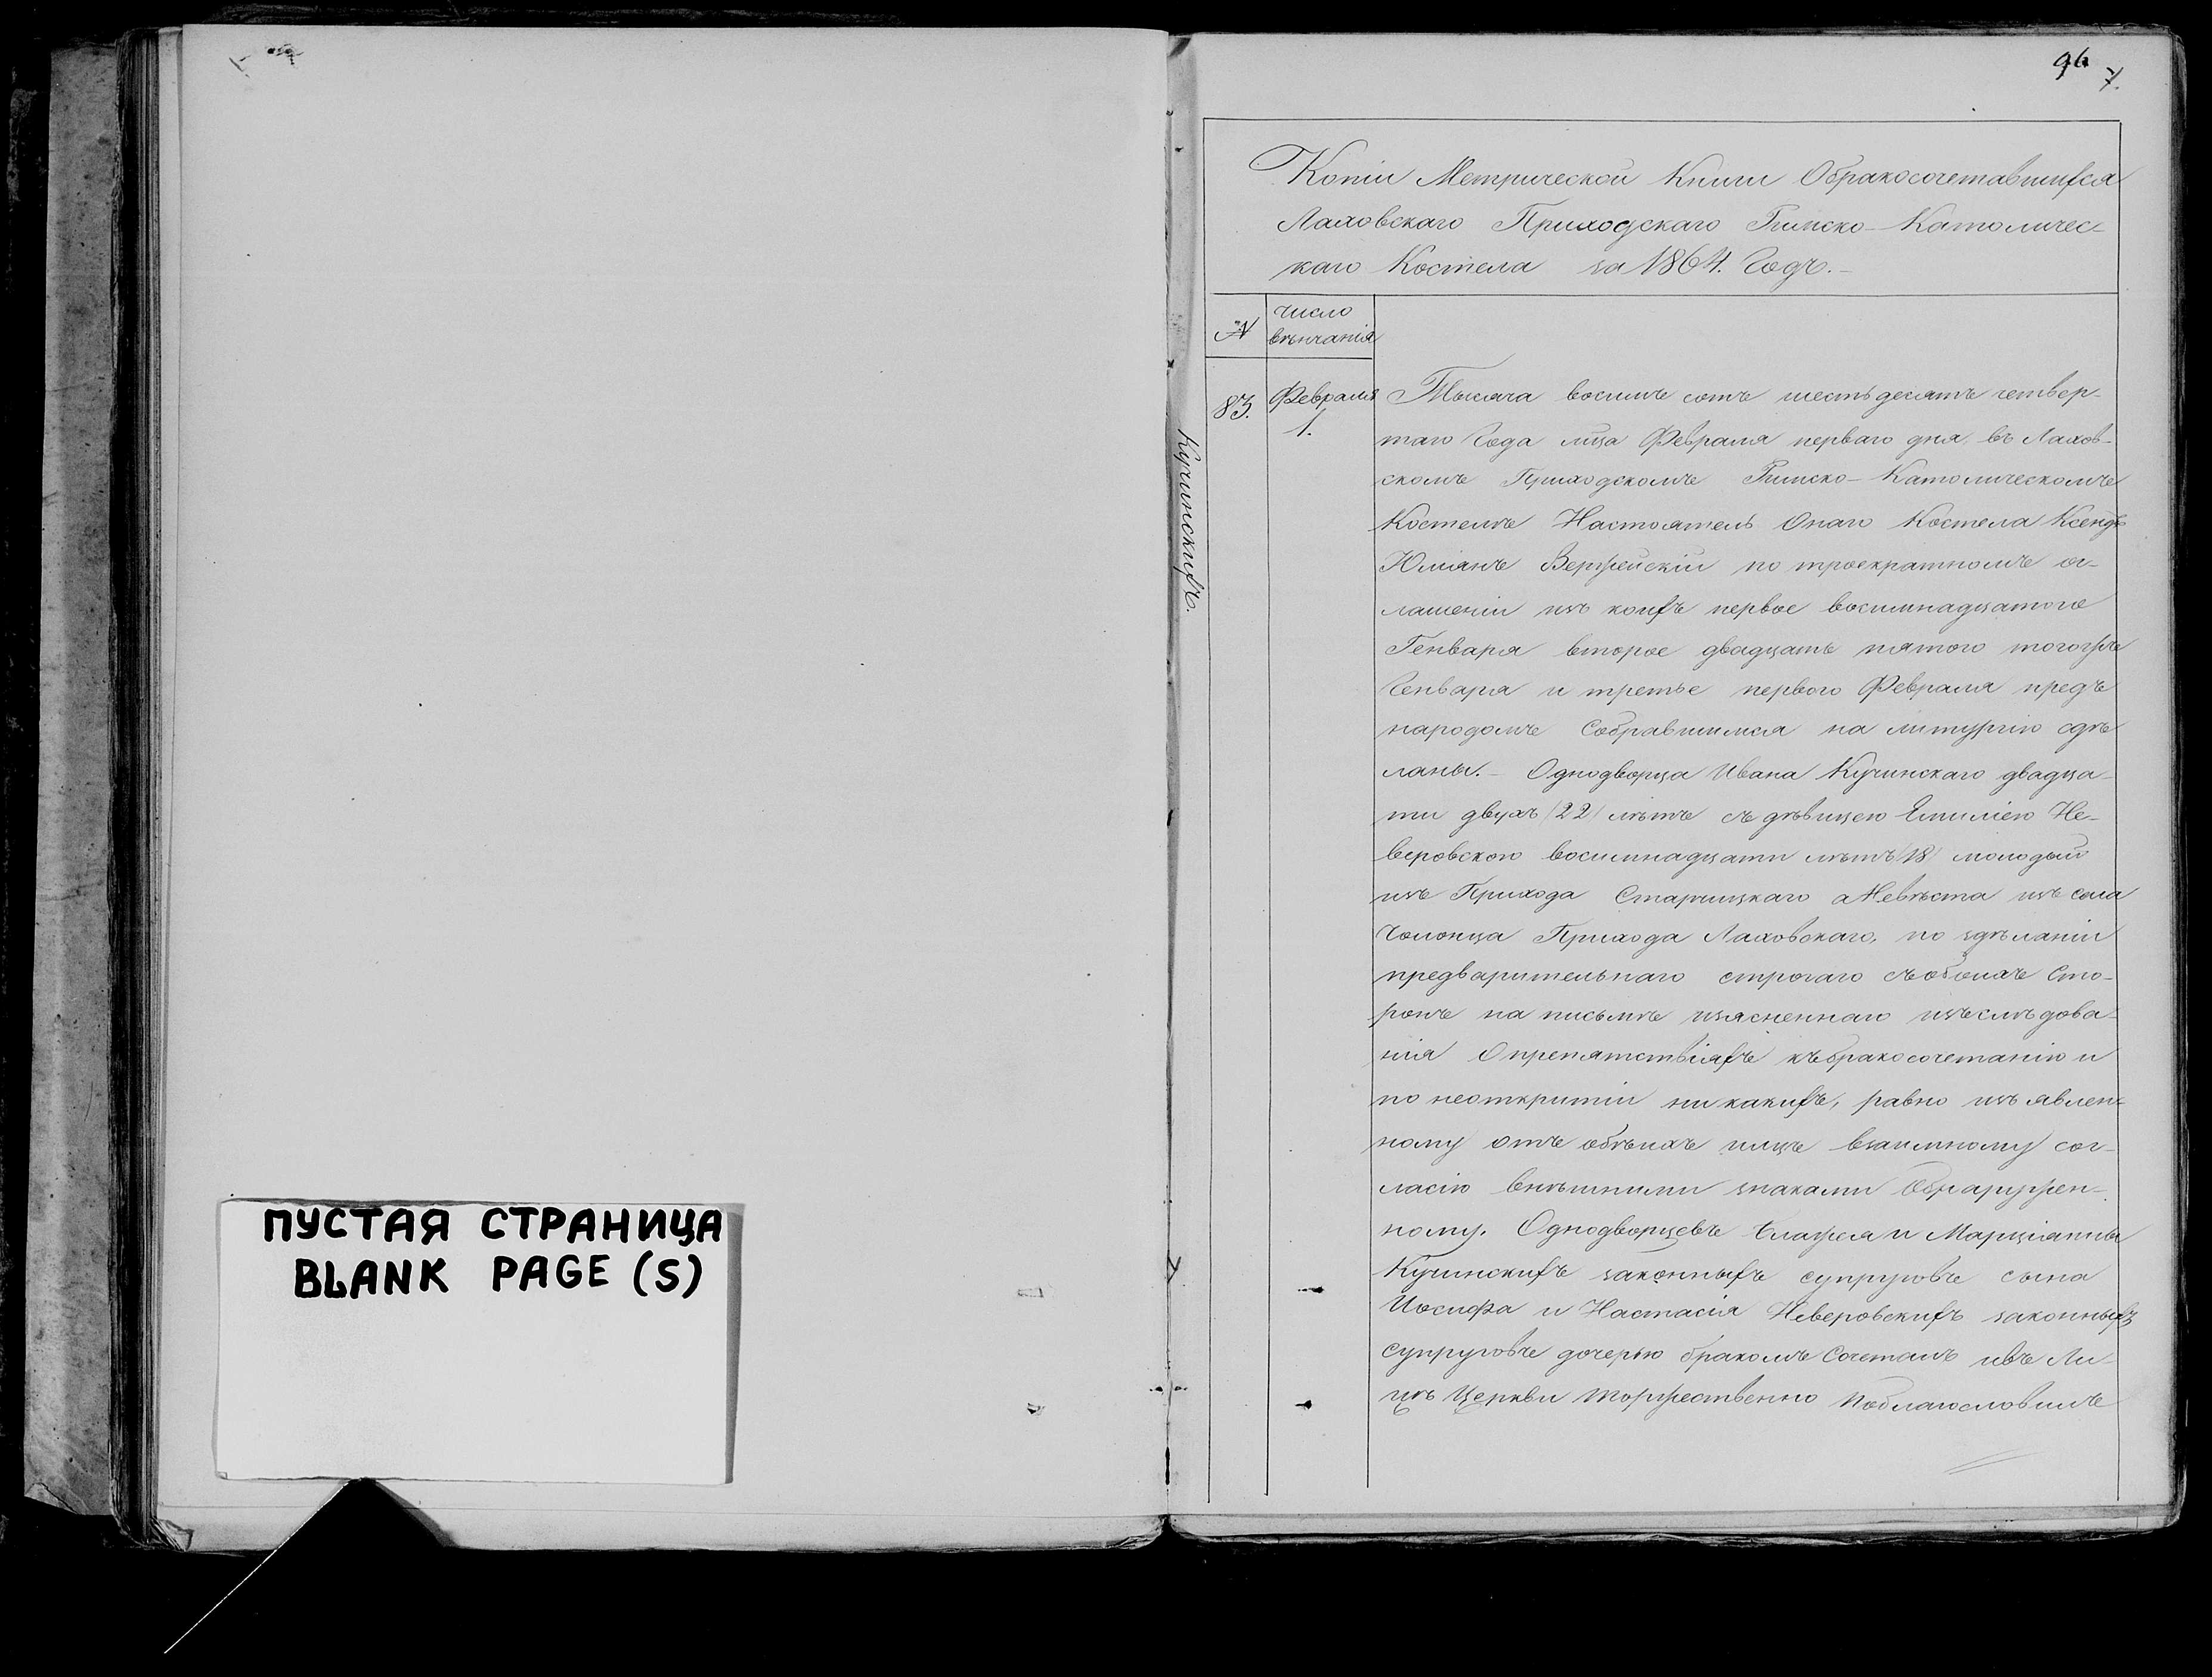 ПУСТАЯ СТРАНИЦА
BLANK PAGE (S)
96
7.
Копіи Метрической Книги Обракосочетавшихся
Лаховскаго Приходскаго Римско-Католичес-
каго Костела за 1864. Годъ.
№
число
вѣнчанія
Кучинскихъ.
83.
Февраля
1.
Тысяча восимъ сотъ шестьдесятъ четвер-
таго Года мца Февраля перваго дня, въ Лахов-
скомъ Приходскомъ Римско-Католическомъ
Костелѣ Настоятель Онаго Костела Ксендзъ
Юліянъ Вержейскій по троекратномъ ог-
лашеніи изъ коихъ первое восимнадцатого
Генваря второе двадцать пятого тогожъ
Генваря и третье первого Февраля предъ
народомъ Собравшимся на литургію сдѣ
ланы.- Однодворца Ивана Кучинскаго двадца-
ти двухъ /22/ лѣтъ съ дѣвицею Емиліею Не-
веровскою восимнадцати лѣтъ /18/ молодый
изъ Прихода Старчицкаго а Невѣста изъ села
Голонца Прихода Лаховскаго, по здѣланіи
предварительнаго строгаго съ обоихъ Сто-
ронъ на письмѣ изясненнаго изъслѣдова-
нія О препятствіяхъ къ бракосочетанію и
по неоткритіи ни какихъ, равно изъявлен-
ному отъ обѣихъ лицъ взаимному сог-
ласію внѣшними знаками Обнаружен-
ному. Однодворцевъ Блажея и Марціянны
Кучинскихъ законныхъ супруговъ сына
Иосифа и Настасія Неверовскихъ законныхъ
супруговъ дочерью бракомъ Сочеталъ ивъ Ли-
цѣ Церкви торжественно Поблагословилъ